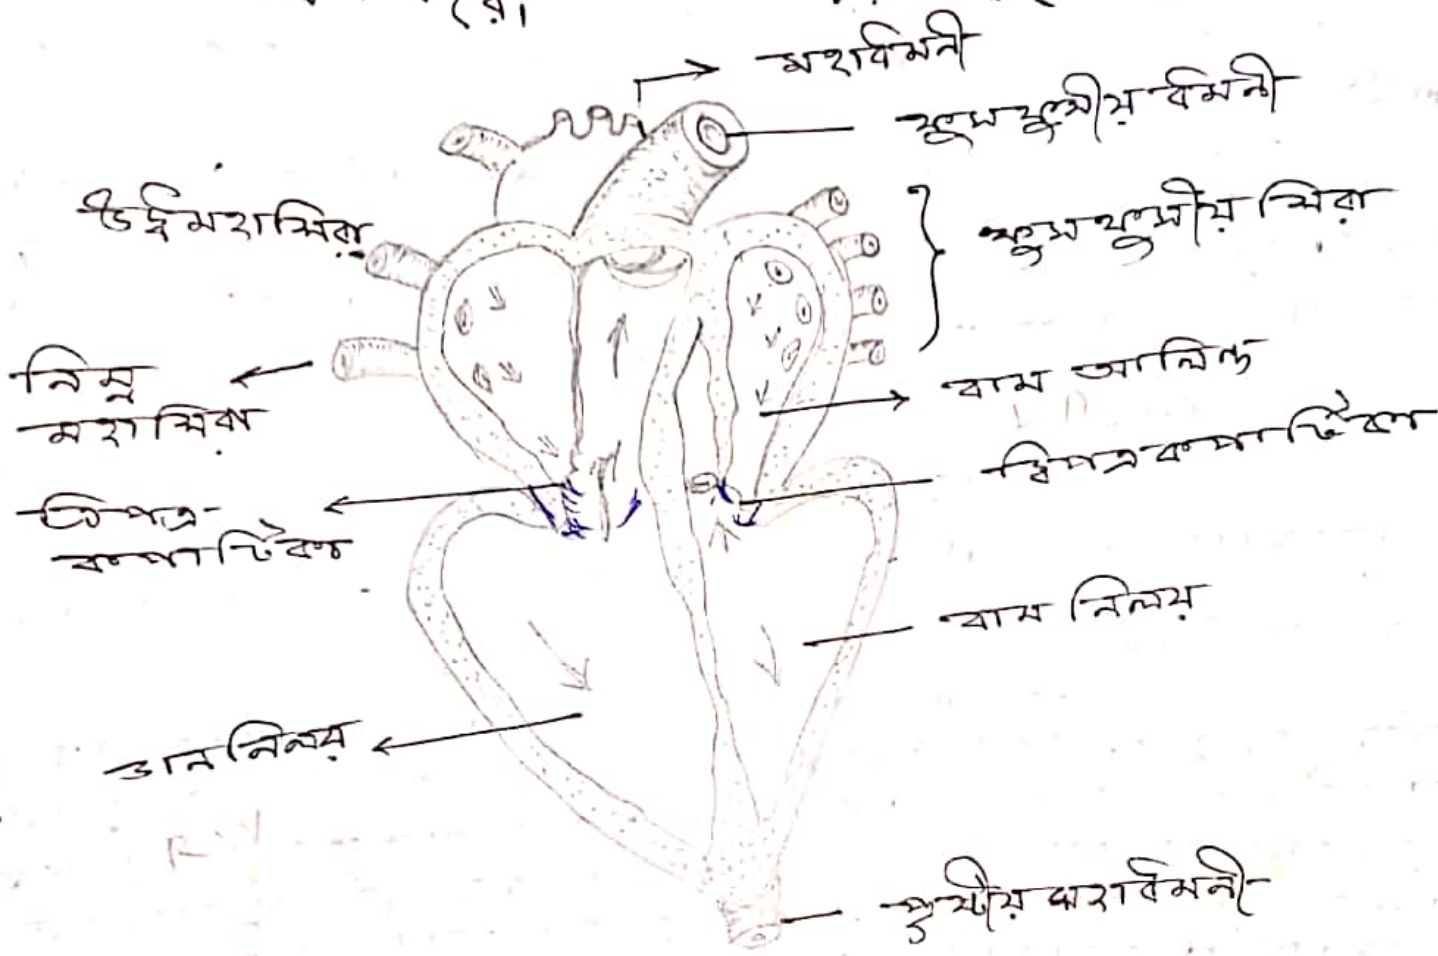 রে।
মহাধমনী
ফুসফুসীয় ধমনী
উর্দ্ধমহাশিরা
ফুসফুসীয় শিরা
নিম্ন
মহাশিরা
বাম আলিন্দ
দ্বিপত্রকপাটিকা
ত্রিপত্র
কপাটিকা
বাম নিলয়
ডান নিলয়
পৃষ্ঠীয় মহাধমনী